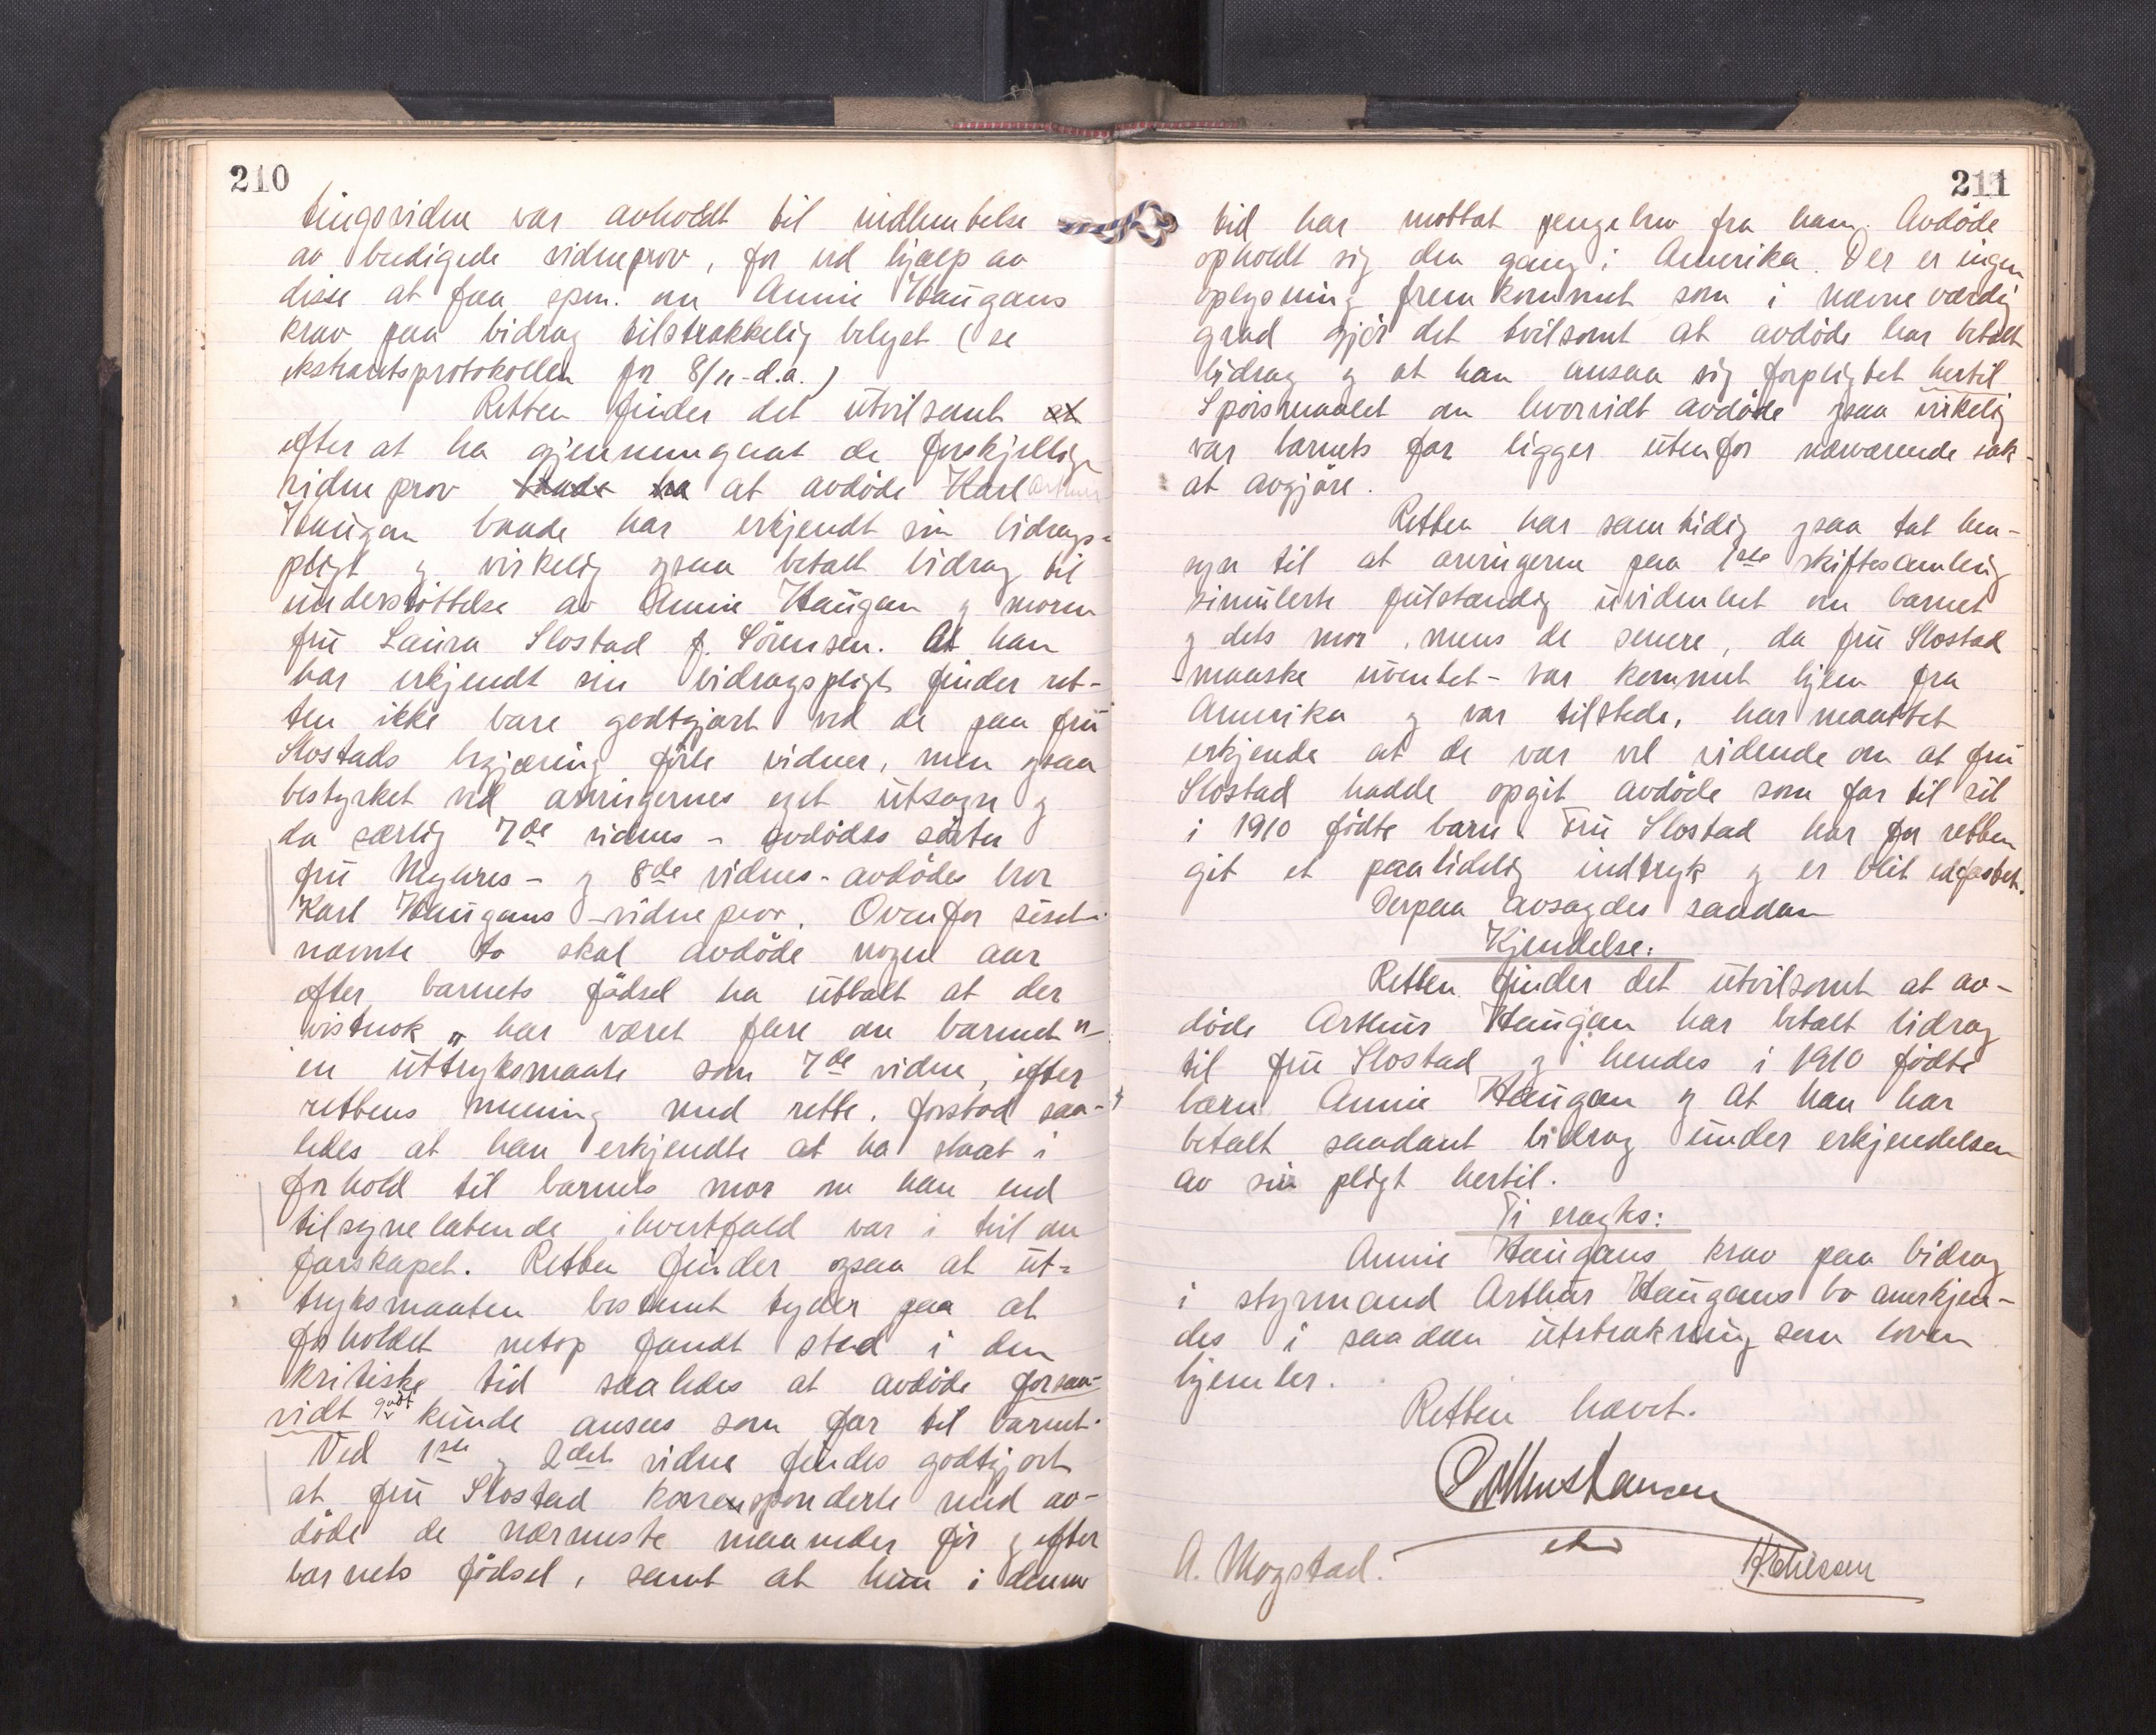 210
tingsvidne var avholdt til indhentelse
av beedigede vidneprov, for ved hjælp av
disse at faa spm. om Annie Haugans
krav paa bidrag tilstrækkelig belyst (se
ekstraretsprotokollen for 8/11-d.a.)
Retten finder det utvilsomt at
efter at ha gjennemgaat de forskjellige
vidneprov baade ha at avdöde Karl Arthur
Haugan baade har erkjendt sin bidrags-
pligt og virkelig ogsaa betalt bidrag til
understöttelse av Annie Haugan og moren
fru Laura Slostad f. Sörensen. At han
har erkjendt sin bidragspligt finder ret-
ten ikke bare godtgjort ved de paa fru
Slostads begjæring förte vidner, men ogsaa
bestyrket ved arvingernes eget utsagn og
da særlig 7de vidnes - avdödes söster
fru - og 8de vidnes - avdödes bror
Karl Haugans - vidneprov. Ovenfor sidst-
nævnte to skal avdöde nogen aar
efter barnets födsel ha uttalt at der
vistnok „har været flere om barnet"
en uttryksmaate som 7de vidne, efter
rettens mening med rette, forstod saa-
ledes at han erkjendte at ha staat i
forhold til barnets mor om han end
tilsynelatende ihvertfald var i tvil om
farskapet. Retten finder ogsaa at ut-
tryksmaaten bestemt tyder paa at
forholdet netop fandt sted i den
kritiske tid saaledes at avdöde forsaa-
vidt godt kunde ansees som far til barnet.
Ved 1ste og 2det vidne findes godtgjort
at fru Slostad korresponderte med av-
döde de nærmeste maaneder för og efter
barnets födsel, samt at hun i denne
211
tid har mottat pengebrev fra ham. Avdöde
opholdt sig den gang i Amerika. Der er ingen
oplysning fremkommet som i nævneværdig
grad gjör det tvilsomt at avdöde har betalt
bidrag og at han ansaa sig forpligtet hertil
Spörsmaalet om hvorvidt avdöde ogsaa virkelig
var barnets far ligger utenfor nærværende sak
at avgjöre.
Retten har samtidig ogsaa tat hen-
syn til at arvingerne paa 1ste skiftesamling
simulerte fulstændig uvidenhet om barnet
og dets mor, mens de senere, da fru Slostad
-maaske uventet- var kommet hjem fra
Amerika og var tilstede, har maattet
erkjende at de var vel vidende om at fru
Slostad hadde opgit avdöde som far til sit
i 1910 födte barn. Fru Slostad har for retten
git et paalidelig indtryk og er blit edfæstet.
Derpaa avsagdes saadan
Kjendelse:
Retten finder det utvilsomt at av-
döde Arthur Haugan har betalt bidrag
til fru Slostad og hendes i 1910 födte
barn Annie Haugan og at han har
betalt saadant bidrag under erkjendelsen
av sin pligt hertil.
Ti eragtes:
Annie Haugans krav paa bidrag
i styrmand Arthur Haugans bo anerkjen-
des i saadan utstrækning som loven
hjemler.
Retten hævet.
A. Mogstad.